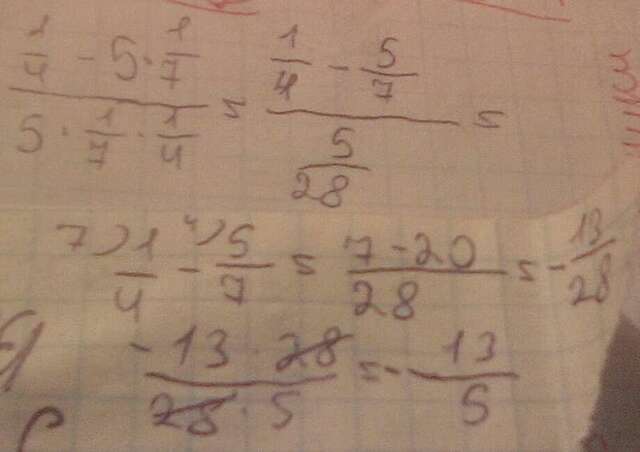 \frac{\frac{1}{4} - 5 \cdot \frac{1}{7}}{5 \cdot \frac{1}{7} \cdot \frac{1}{4}} = \frac{\frac{1}{4} - \frac{5}{7}}{\frac{5}{28}} =
7) \frac{1}{4} - 4) \frac{5}{7} = \frac{7-20}{28} = -\frac{13}{28}
\frac{-13 \cdot 28}{28 \cdot 5} = -\frac{13}{5}